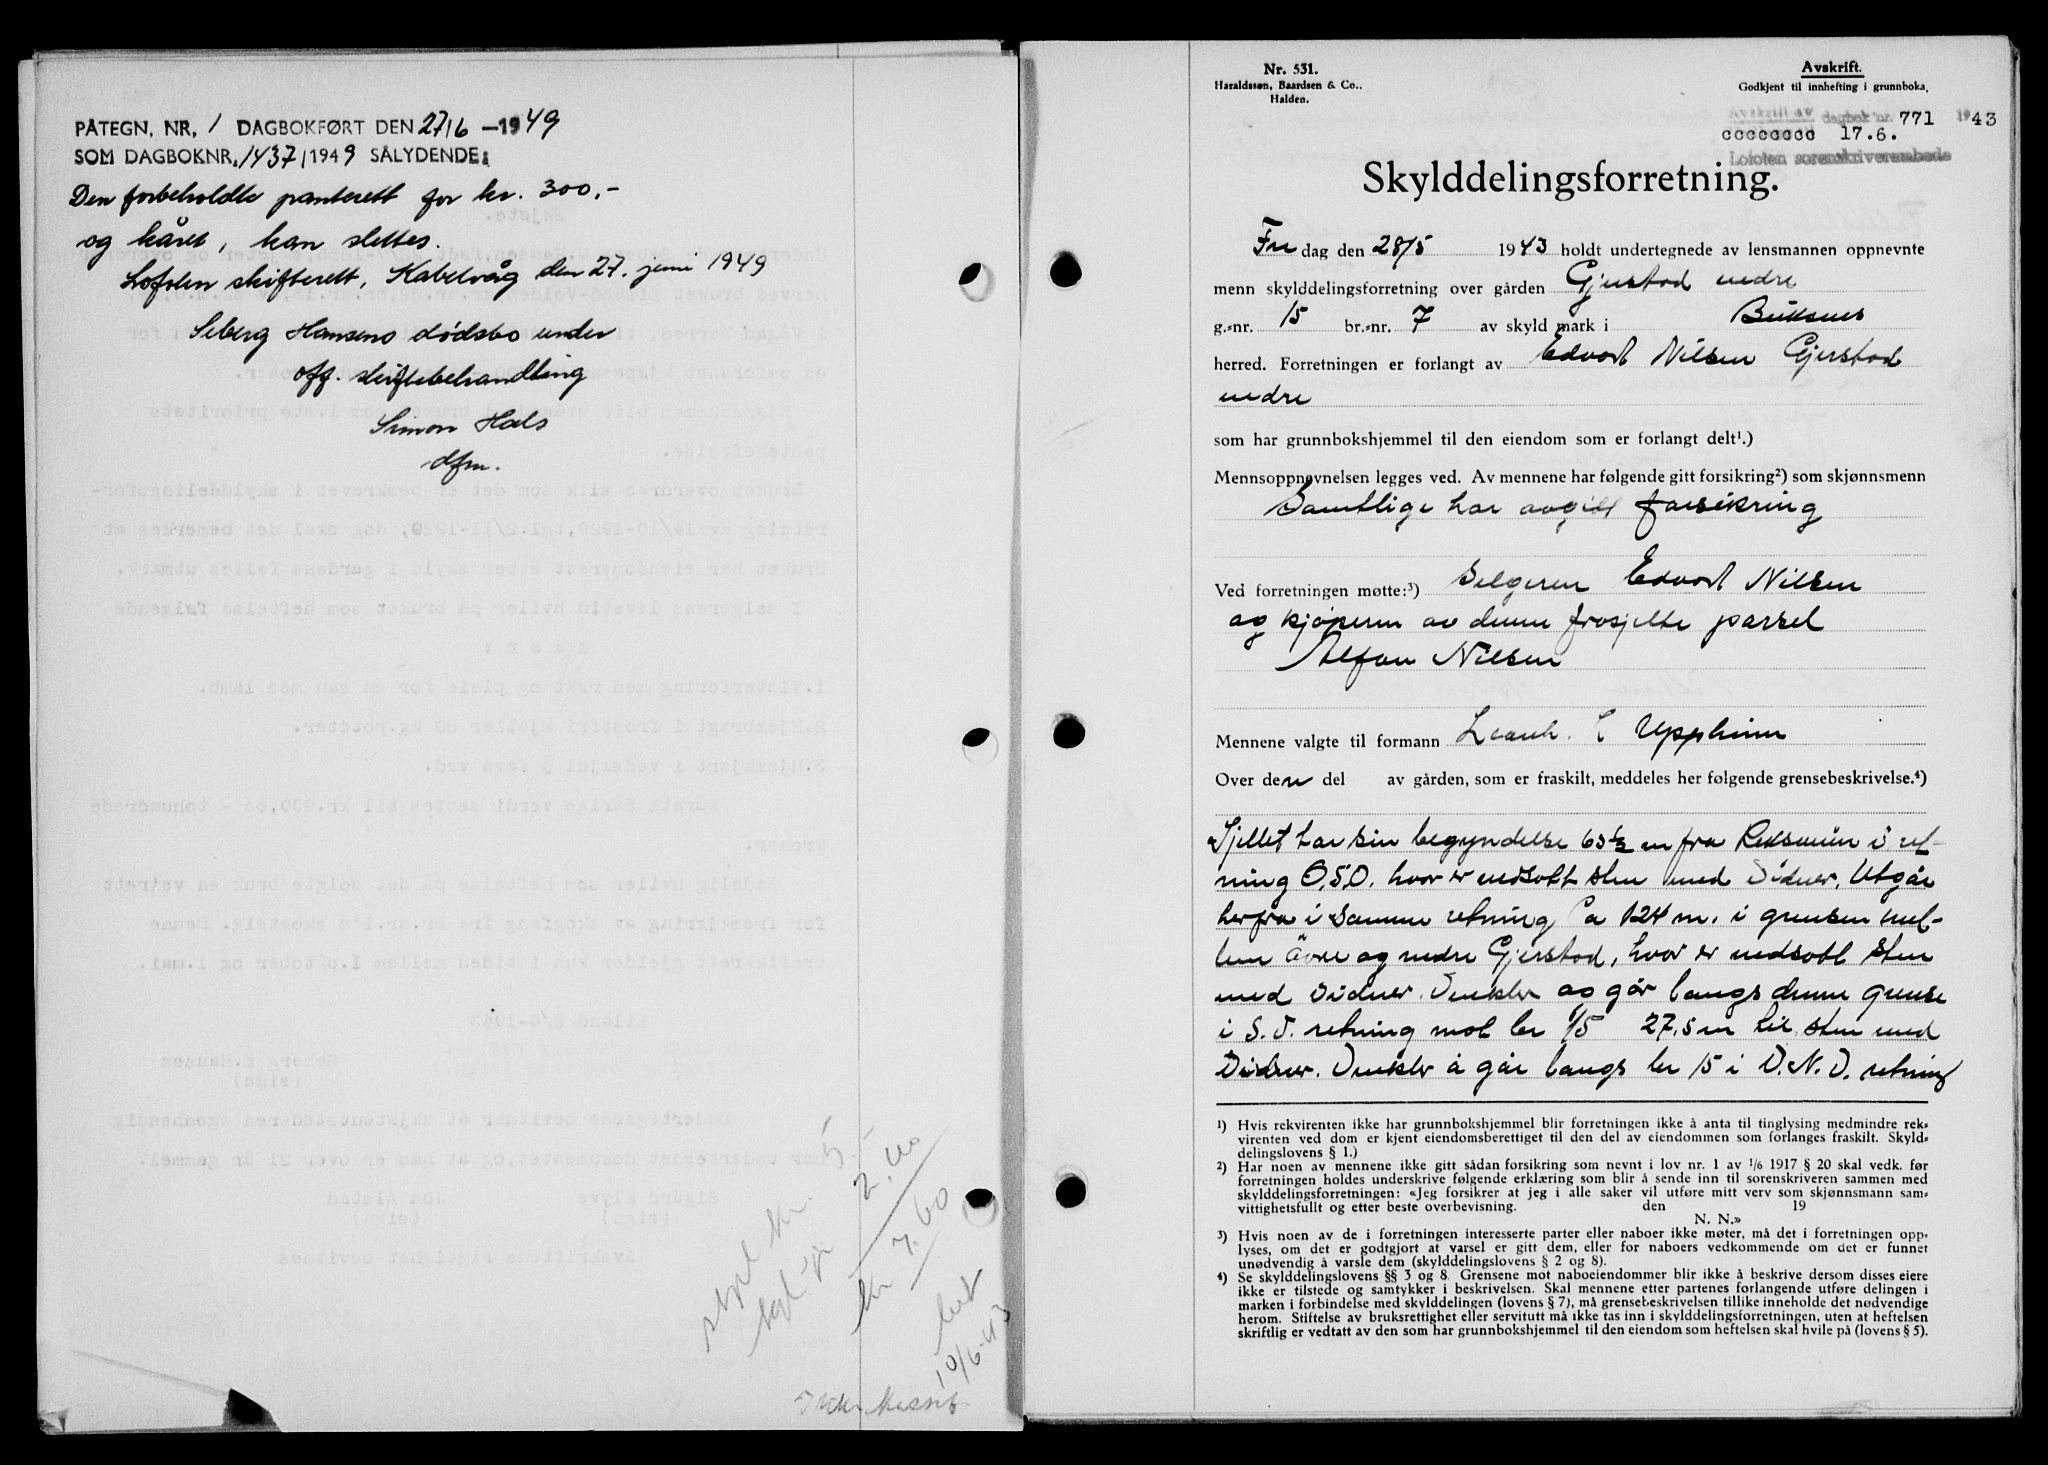 PÅTEGN. NR. 1 DAGBOKFØRT DEN 27/6 -1949
SOM DAGBOKNR. 1437/1949 SÅLYDENDE:
Den forbeholdte panterett for kr. 300,-
og kåret, kan slettes.
Lofoten skifterett, Kabelvåg den 27. juni 1949
Seberg Hansens dødsbo under
off. skiftebehandling
Simon Hals
dfm.
kr 7.60
10/6-43
Nr. 531.
Haraldssøn, Baardsen & Co.,
Halden.
Avskrift.
Godkjent til innhefting i grunnboka.
Avskrift av dagbok nr. 771 1943
cccccccc 17.6.
Lofoten sorenskriverembede
Skylddelingsforretning.
Fre dag den 28/5 1943 holdt undertegnede av lensmannen oppnevnte
menn skylddelingsforretning over gården Gjerstad nedre
g.-nr. 15 br.-nr. 7 av skyld mark i Buksnes
herred. Forretningen er forlangt av Edvart Nilsen Gjerstad
nedre
som har grunnbokshjemmel til den eiendom som er forlangt delt¹.)
Mennsoppnevnelsen legges ved. Av mennene har følgende gitt forsikring²) som skjønnsmenn
Samtlige har avgitt forsikring
Ved forretningen møtte:³) Selgeren Edvart Nilsen
og kjøperen av denne fraskjelte parsel
Alfon Nilsen
Mennene valgte til formann Leonh. Uppheim
Over den del av gården, som er fraskilt, meddeles her følgende grensebeskrivelse.⁴)
Sjellet har sin begyndelse 63½ m fra i ret-
ning O.S.O. hvor er nedsatt sten med Vidner. Utgår
herfra i samme retning Ca 124 m. i grensen mel-
lem övre og nedre Gjerstad, hvor er nedsatt sten
med vidner. Vinkler og går langs denne grense
i S.V. retning mot br 1/5 27,5 m til sten med
Vidner. Vinkler å går langs br 15 i V.N.V. retning
1) Hvis rekvirenten ikke har grunnbokshjemmel blir forretningen ikke å anta til tinglysing medmindre rek-
virenten ved dom er kjent eiendomsberettiget til den del av eiendommen som forlanges fraskilt. Skyld-
delingslovens § 1.)
2) Har noen av mennene ikke gitt sådan forsikring som nevnt i lov nr. 1 av 1/6 1917 § 20 skal vedk. før
forretningen holdes underskrive følgende erklæring som blir å sende inn til sorenskriveren sammen med
skylddelingsforretningen: «Jeg forsikrer at jeg i alle saker vil utføre mitt verv som skjønnsmann sam-
vittighetsfullt og etter beste overbevisning. den 19
N. N.»
3) Hvis noen av de i forretningen interesserte parter eller naboer ikke møter, må det i forretningen opp-
lyses, om det er godtgjort at varsel er gitt dem, eller for naboers vedkommende om det er funnet
unødvendig å varsle dem (skylddelingslovens § 2 og 8).
4) Se skylddelingslovens §§ 3 og 8. Grensene mot naboeiendommer blir ikke å beskrive dersom disses eiere
ikke er tilstede og samtykker i beskrivelsen. Skal mennene etter partenes forlangende utføre delingen i
marken i forbindelse med skylddelingen (lovens § 7), må grensebeskrivelsen tillike inneholde det nødvendige
herom. Stiftelse av bruksrettighet eller servitutt må ikke tas inn i skylddelingsforretningen, uten at heftelsen
skriftlig er vedtatt av den som har grunnbokshjemmel til den eiendom som heftelsen skal hvile på (lovens § 5).